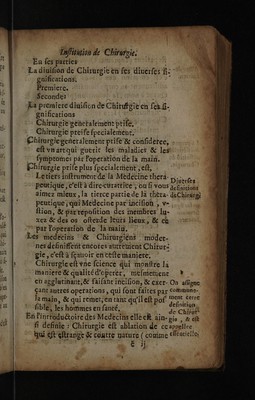 Institution de Chirurgie.
En ses parties
La diuision de Chirurgie en ses diuerses si-
gnifications.
Premiere.
Seconde:
La premiere diuision de Chirurgie en ses si-
gnifications
Chirurgie generalement prise.
Chirurgie prise specialement.
Chirurgie generalement prise & considerée,
est vn art qui guerit les maladies & les
symptomes par l'operation de la main.
Chirurgie prise plus specialement, est,
Le tiers instrument de la Medecine thera
peutique, c'est à dire curatiue, ou si vous
aimez mieux, la tierce partie de la thera
peutique, qui Medecine par incision, v-
stion, & par reposition des membres lu-
xez & des os hors de leurs lieux, &
par l'operation de la main.
Diuerses
definitions
de Chirurgi
Les medecins & Chirurgiens moder-
nes definissent encores autrement Chirur-
gie, c'est à sçauoir en ceste maniere.
Chirurgie est vne science qui monstre la
maniere & qualité d'operer, mesmement
en agglutinant, & faisant incision, & exer-
çant autres operations, qui sont faites par
la main, & qui remet, en tant qu'il est pos
sible, les hommes en santé.
On assigne
communé-
ment cette
definition
de Chirur
gie, & est
appellee
essentielle.
En l'introductoire des Medecins elle est ain-
si definie: Chirurgie est ablation de ce
qui est estrange & contre nature / comme
ë ij